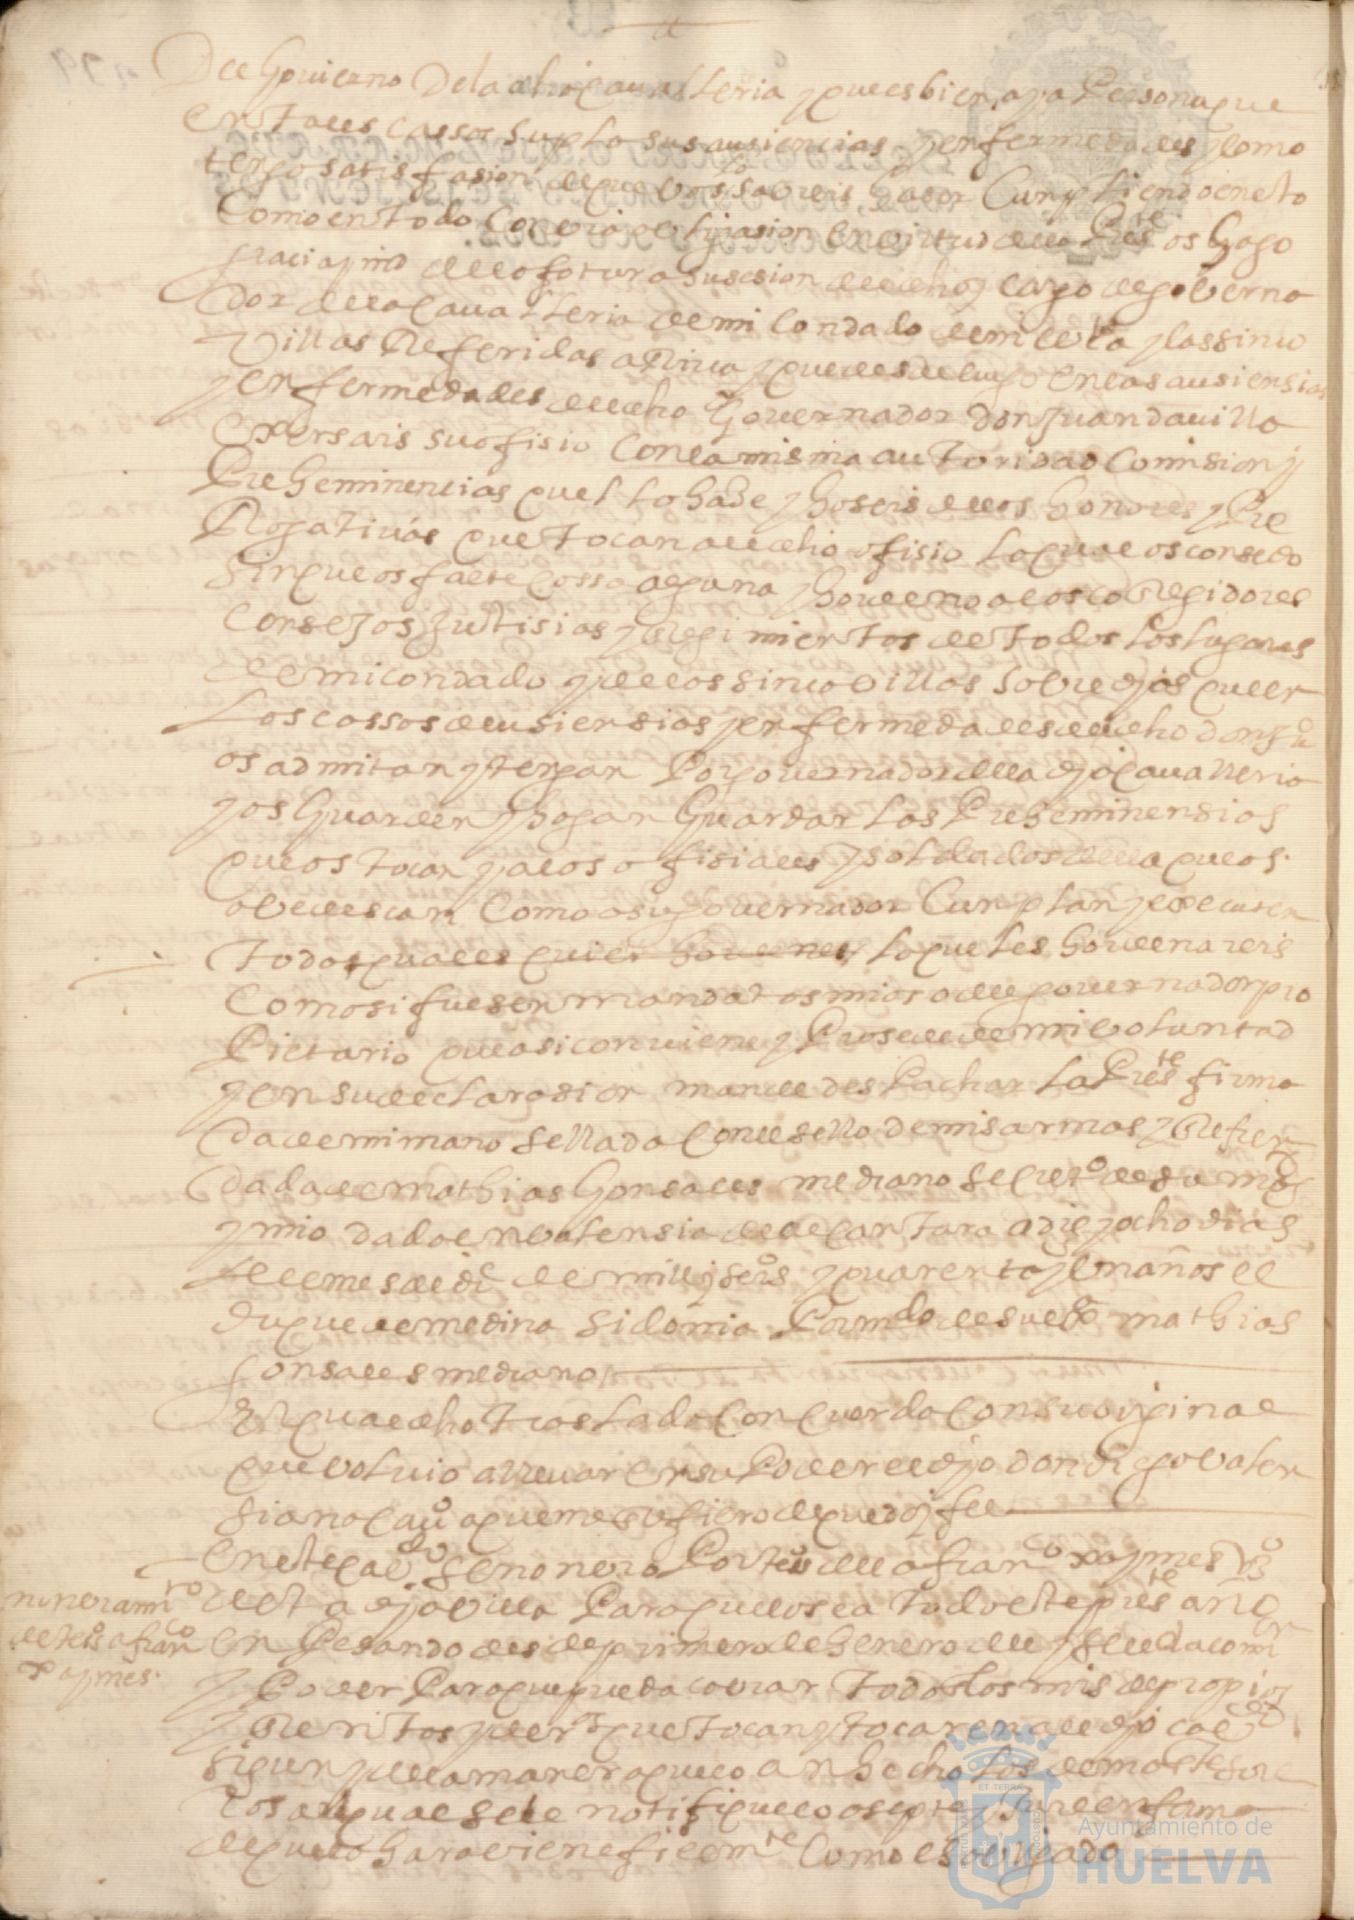 Del Govierno De la dha Cavalleria y que es bien aya Persona que
en tales cassos supla sus ausiencias y enfermedades y como
tengo satisfasion de que vos lo sabreis haser Cunpliendo en esto
como en todo con via obligasion En virtud de la Preste os Hago
grasia y md de la fotura susesion de el dho cargo de governa
dor de la Cavalleria de mi Condado de niebla y las sinco
Villas Referidas aRiva y que desde luego en las ausiensias
y enfermedades de el dho Governador Don Juan davilla
Exersais su ofisio Con la misma autoridad Comision y
Preheminencias que el lo hase y goseis de los honores y Pre
Rogativas que tocan a el dho ofisio lo qual os consedo
sin que os falte cossa alguna y hordeno a los coRegidores
Consejos Justisias y Regimientos de todos los lugares
de mi condado y de las sinco villas sobre djas que en
los cassos de ausiensias y enfermedades de el dho don Juo
os admitan y tengan Por governador de la dja Cavalleria
y os Guarden y hagan Guardar las Preheminensias
que os tocan y a los ofisiales y soldados de ella que os
obedescan Como a su governador Cunplan y executen
todas quales quier hordenes lo que les hordenareis
Como si fuesen mandatos mios o de el governador pro
Pietario que asi conviene y Prosede de mi voluntad
y en su declarasion mande despachar la Preste firma
da de mi mano sellada Con el sello de mis armas y Refren
dada de mathias Gonsales mediano secreto de su magd
y mio dada en valensia de alcantara a dies y ocho dias
de el mes de dic de mill y seisos y quarenta y un años el
duque de medina sidonia Por mdo de su exa mathias
Gonsales mediano
El qual dho traslado Concuerda Con su original
que volvio a llevar En su Poder el djo don diego valen
siano cavo a que me Refiero de que doy fee
En este cavdo se nonbro Por teso de ella a franco xaymes vo
de esta dja villa Para que lo sea todo este preste año
en Pesando desde primero de henero de el y se le da comion
y Poder Para que pueda cobrar todos los mrs de propios
y Rentos y der que tocan y tocaren a el djo cavdo
sigun y de la manera que lo an hecho los demas tesore
ros a el qual se le notifique lo asepte y jure en forma
de que lo hara bien e fielmte Como es obligado
nonbrami
to de teso a franco
xaymes
Ayuntamiento de
HUELVA